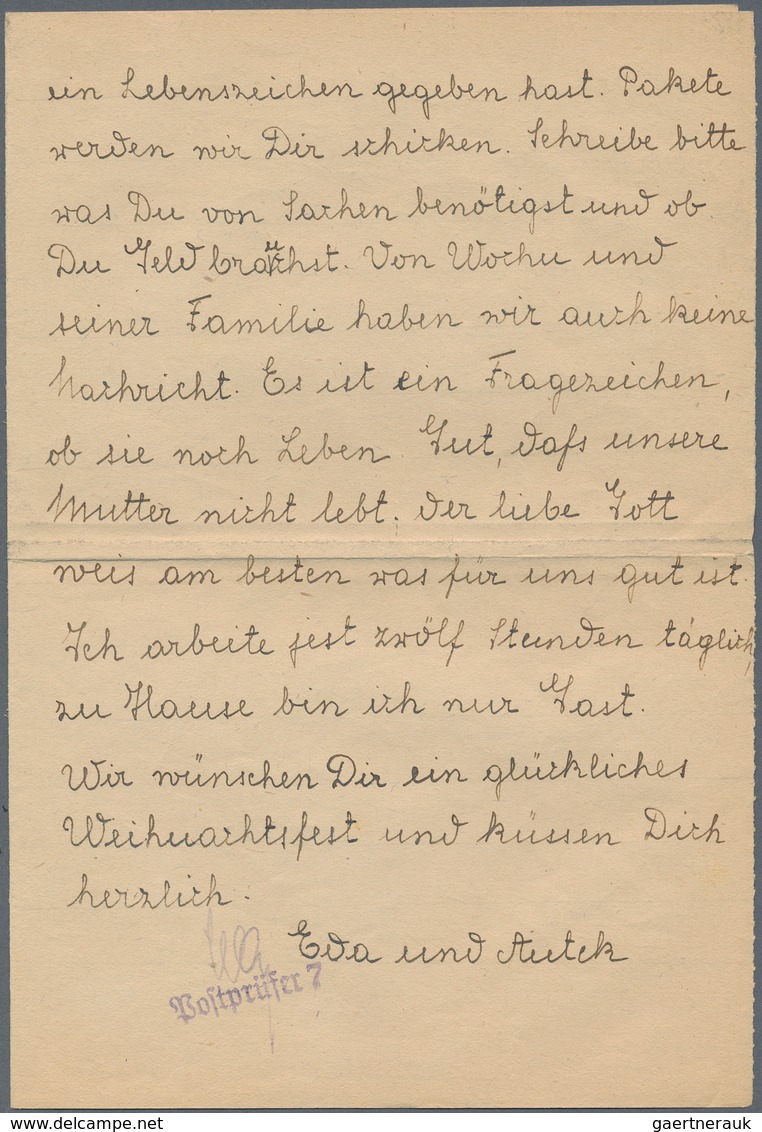 ein Lebenszeichen gegeben hast. Pakete
werden wir Dir schicken. Schreibe bitte
was Du von Sachen benötigst und ob
Du Geld brauchst. Von Wochu und
seiner Familie haben wir auch keine
Nachricht. Es ist ein Fragezeichen,
ob sie noch Leben. Gut, dafs unsere
Mutter nicht lebt. der liebe Gott
weis am besten was für uns gut ist.
Ich arbeite jest zwölf Stunden täglich,
zu Hause bin ich nur Gast.
Wir wünschen Dir ein glückliches
Weihnachtsfest und küssen Dich
herzlich.
Eda und
Postprüfer 7
www.delcampe.net
gaertnerauk